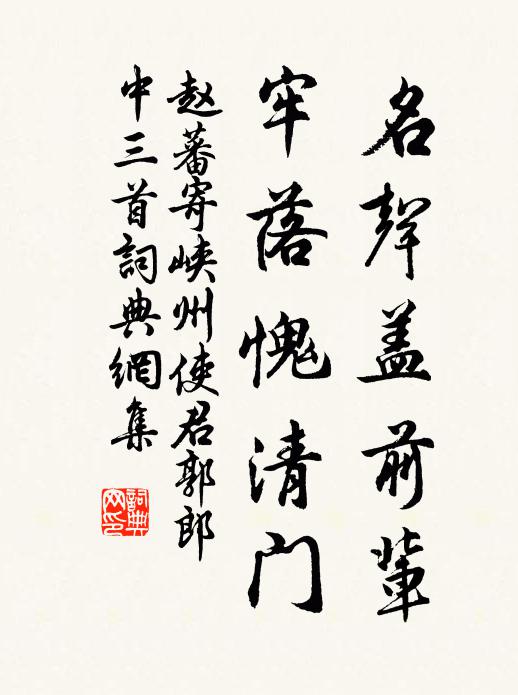 名聲盖前輩
牢落愧清門
赵蕃寄峡州使君郭郎
中三首詞典網集
詞典
网印